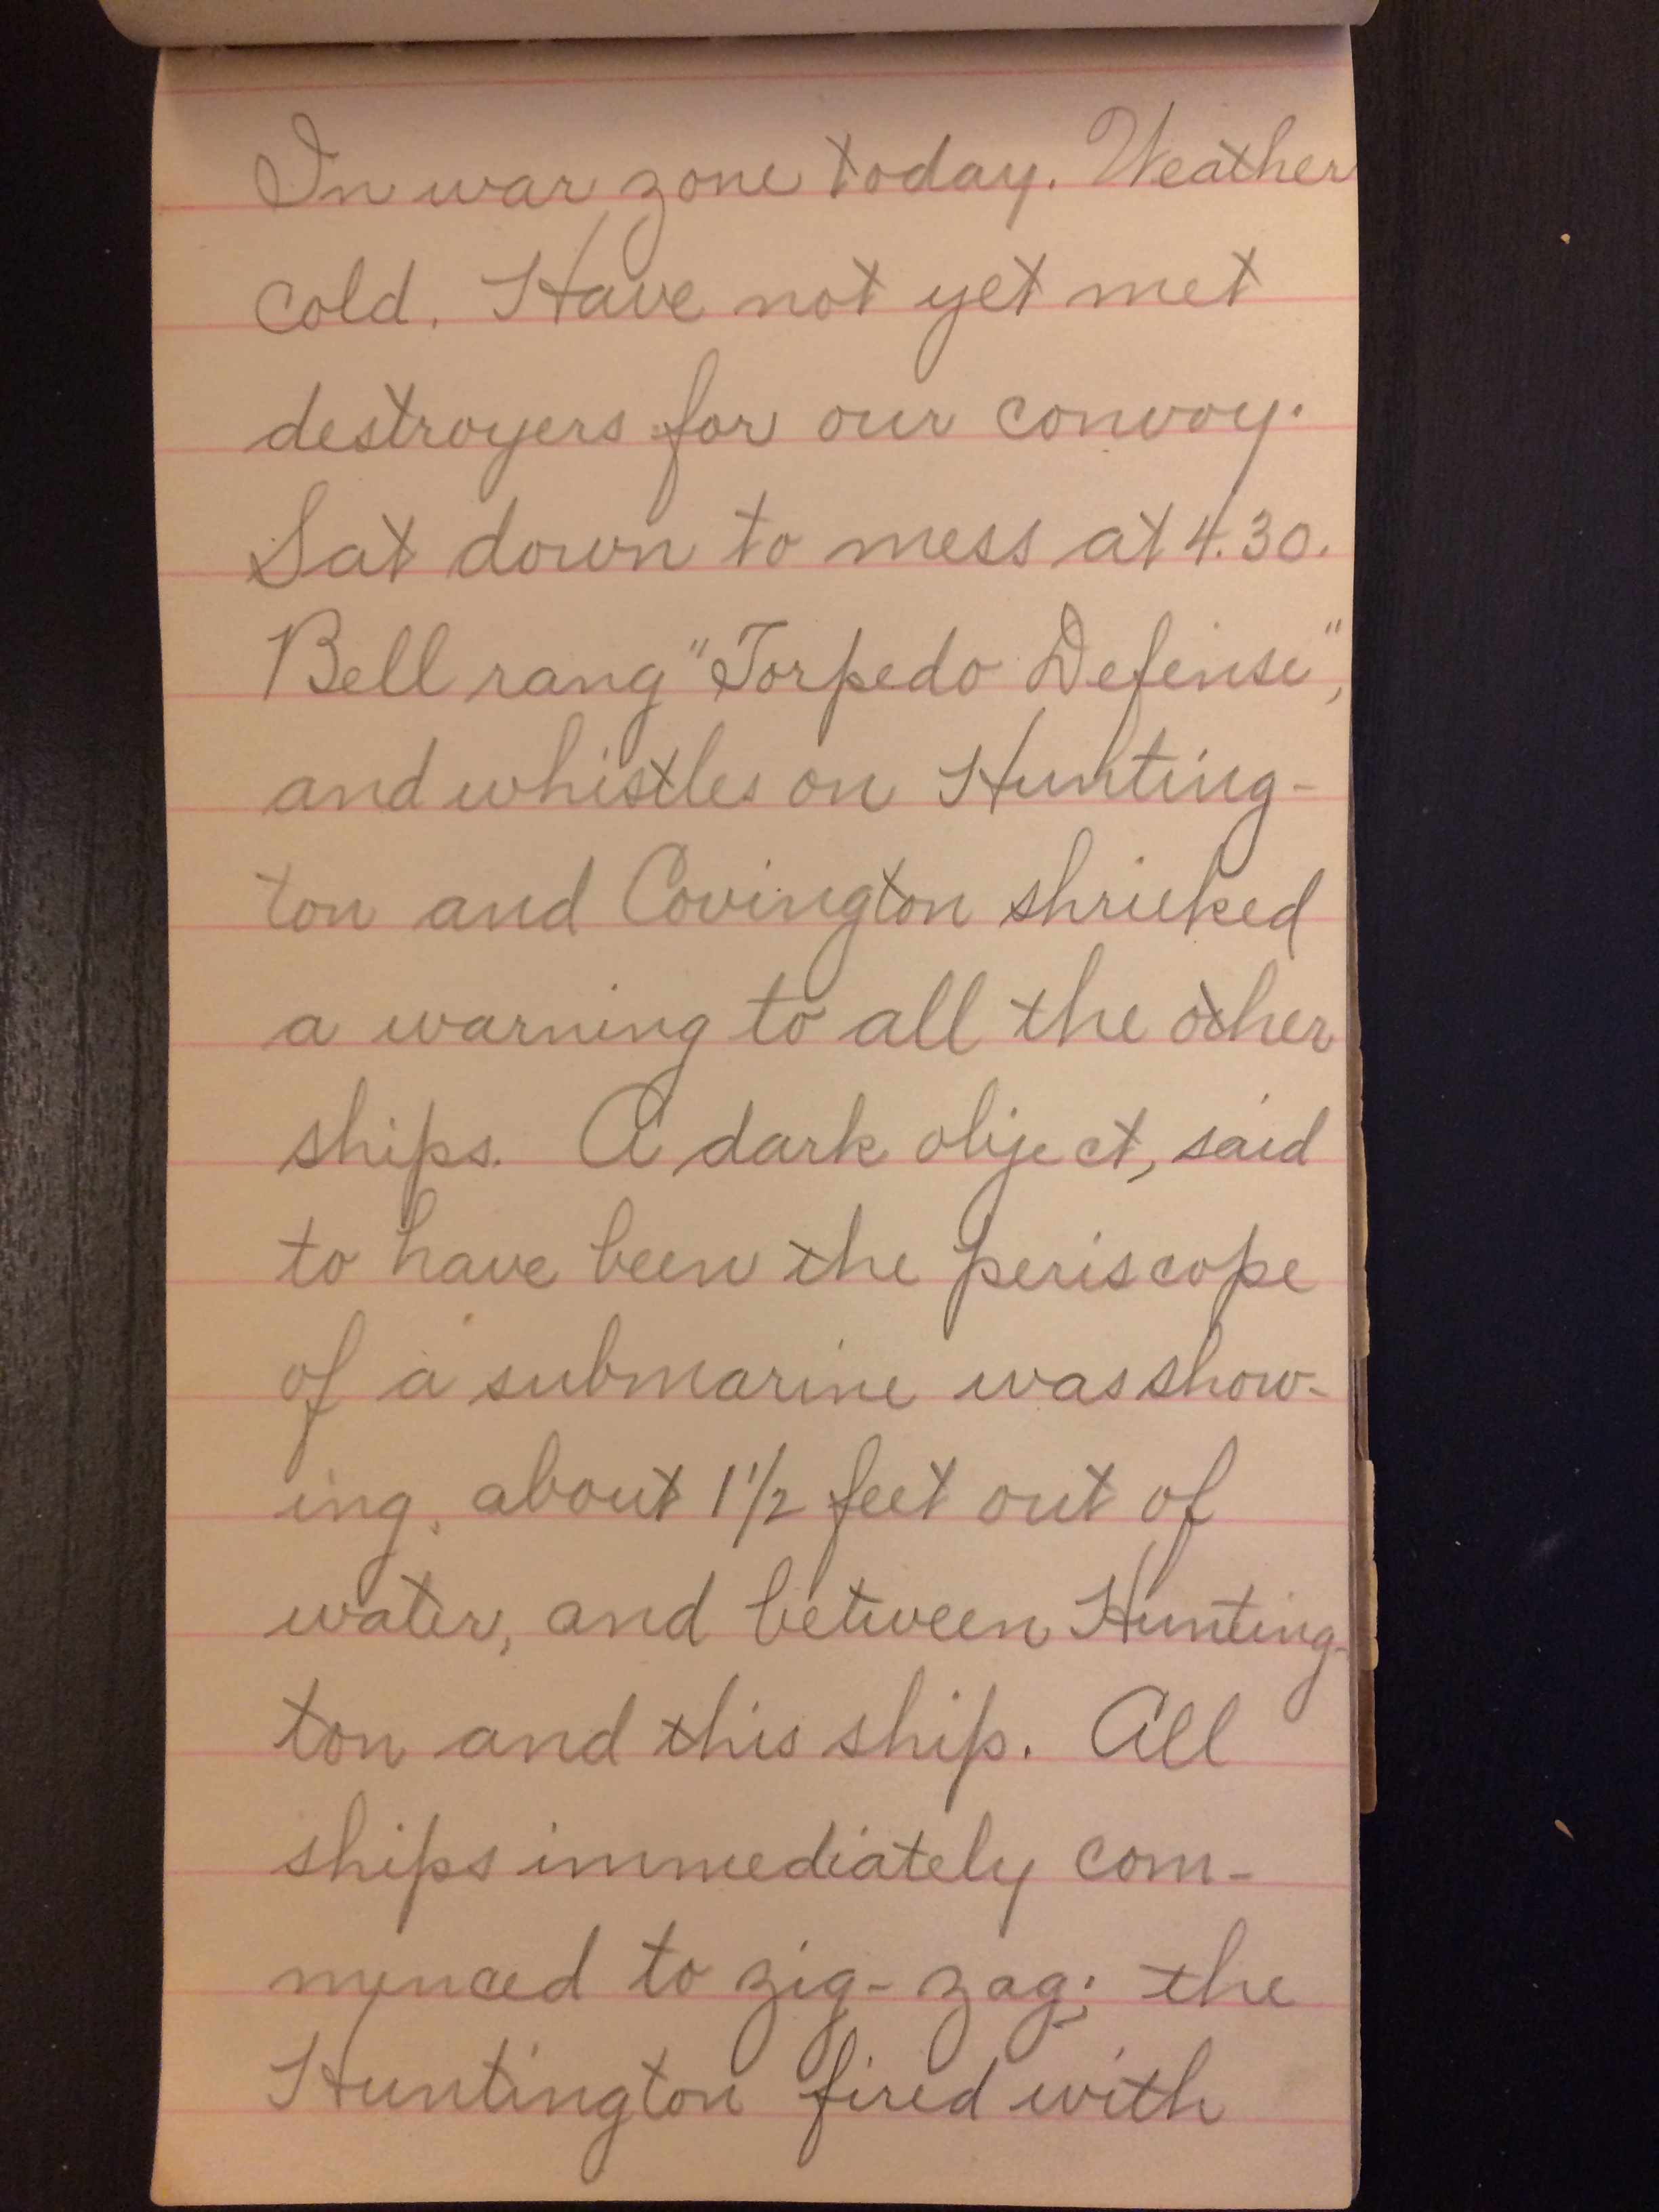 In war zone today. Weather
cold. Have not yet met
destroyers for our convoy.
Sat down to mess at 4.30.
Bell rang "Torpedo Defense",
and whistles on Hunting-
ton and Covington shrieked
a warning to all the other
ships. A dark object, said
to have been the periscope
of a submarine was show-
ing, about 1 1/2 feet out of
water, and between Hunting-
ton and this ship. All
ships immediately com-
menced to zig-zag; the
Huntington fired with